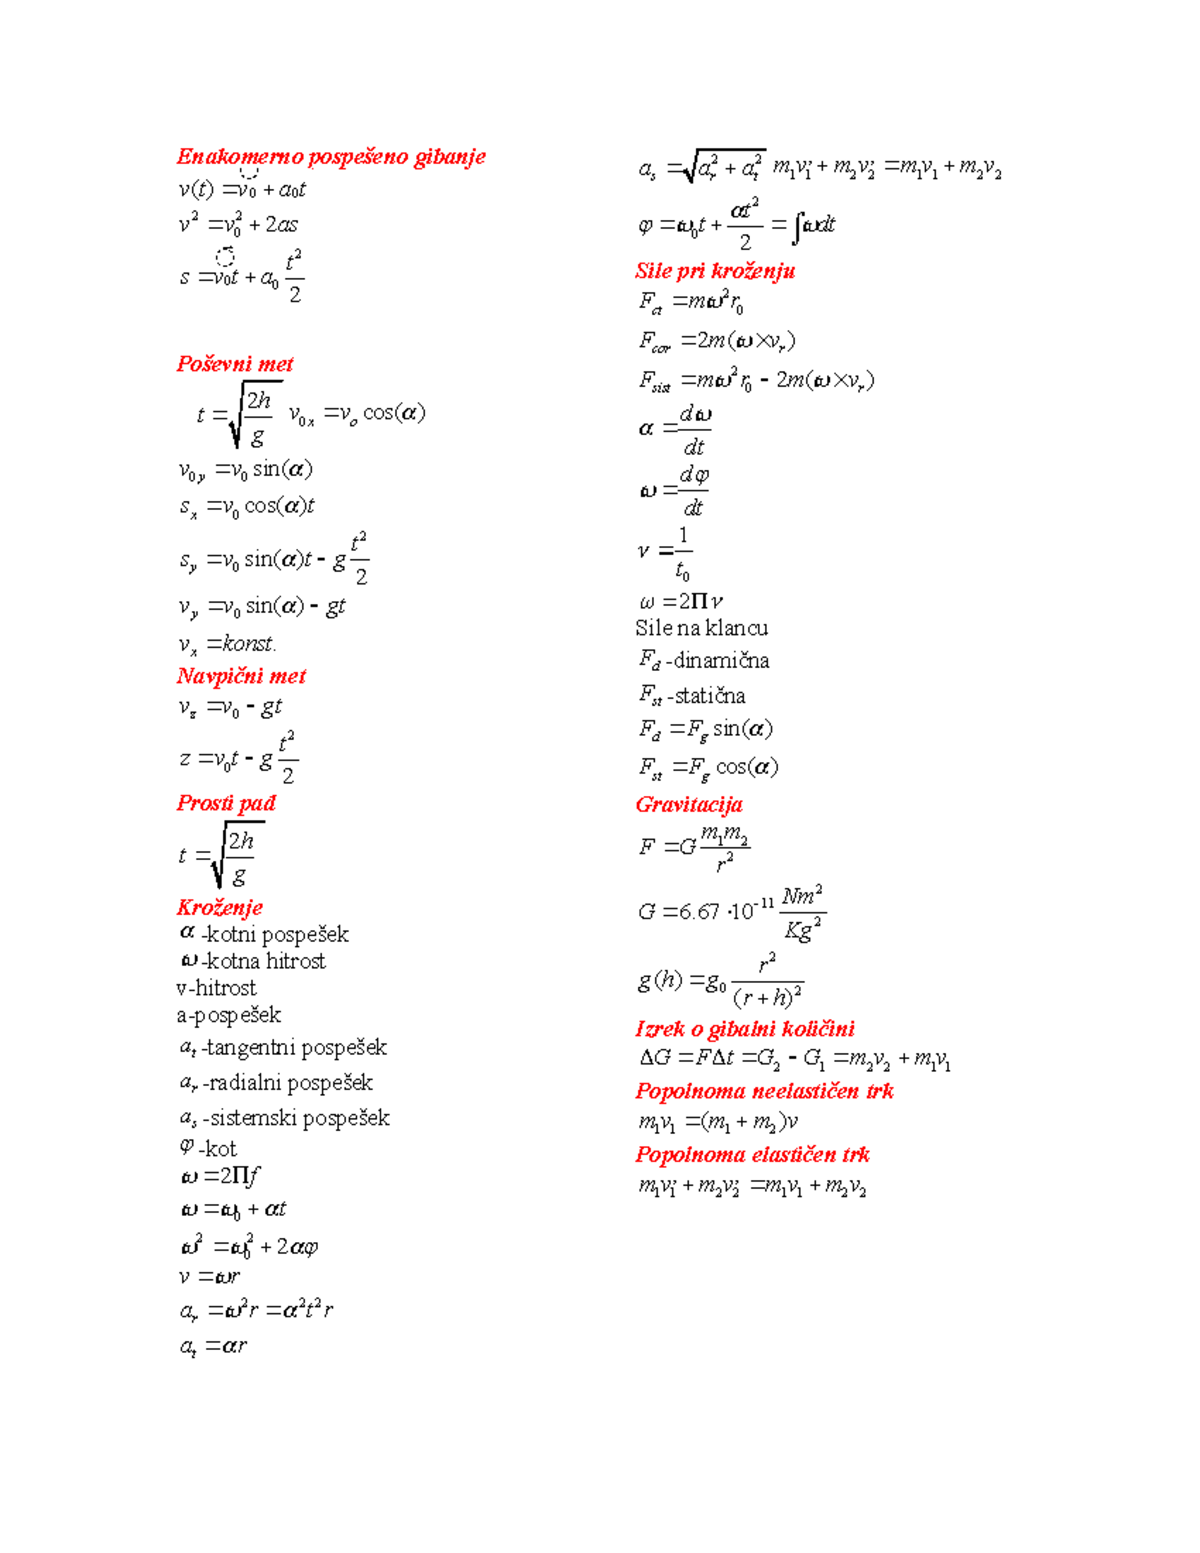 Enakomerno pospešeno gibanje
v(t) = v₀ + a₀t
v² = v₀² + 2as
s = v₀t + a₀ t²/2
Poševni met
t = √(2h/g) v₀ₓ = vₒ cos(α)
v₀ᵧ = v₀ sin(α)
sₓ = v₀ cos(α)t
sᵧ = v₀ sin(α)t - g t²/2
vᵧ = v₀ sin(α) - gt
vₓ = konst.
Navpični met
v_z = v₀ - gt
z = v₀t - g t²/2
Prosti pad
t = √(2h/g)
Kroženje
α -kotni pospešek
ω -kotna hitrost
v-hitrost
a-pospešek
a_t -tangentni pospešek
a_r -radialni pospešek
a_s -sistemski pospešek
φ -kot
ω = 2Πf
ω = ω₀ + αt
ω² = ω₀² + 2αφ
v = ωr
a_r = ω²r = α²t²r
a_t = αr
a_s = √(a_r² + a_t²) m₁v₁' + m₂v₂' = m₁v₁ + m₂v₂
φ = ω₀t + αt²/2 = ∫ωdt
Sile pri kroženju
F_ct = mω²r₀
F_cor = 2m(ω×v_r)
F_sist = mω²r₀ - 2m(ω×v_r)
α = dω/dt
ω = dφ/dt
ν = 1/t₀
ω = 2Πν
Sile na klancu
F_d -dinamična
F_st -statična
F_d = F_g sin(α)
F_st = F_g cos(α)
Gravitacija
F = G m₁m₂/r²
G = 6.67 ·10⁻¹¹ Nm²/Kg²
g(h) = g₀ r²/(r + h)²
Izrek o gibalni količini
ΔG = FΔt = G₂ - G₁ = m₂v₂ + m₁v₁
Popolnoma neelastičen trk
m₁v₁ = (m₁ + m₂)v
Popolnoma elastičen trk
m₁v₁' + m₂v₂' = m₁v₁ + m₂v₂